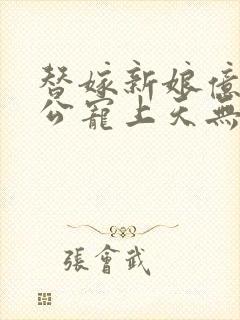 替嫁新娘億
公寵上天無
張會武